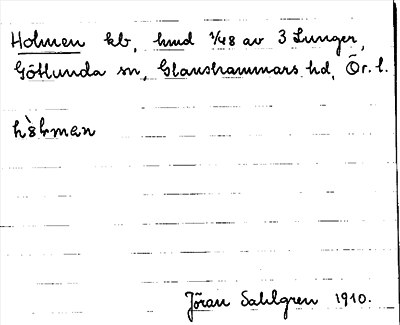 Holmen kb, hmd 1/48 av 3 Lunger,
Götlunda sn, Glanshammars hd, Ör. l.
Jöran Sahlgren 1910.